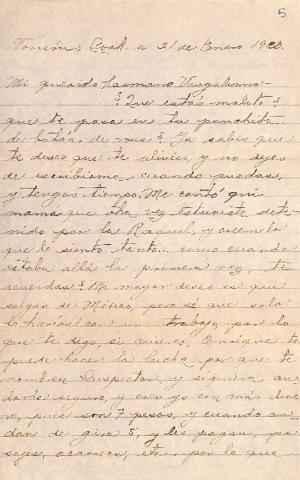 5
Torreón, Coah. a 21 de Enero 19
Mi querido hermano
¿Que estás malito?
que te pasa en tu panchita
de ¿Ya sabes que
te deseo que te alivies, y no dejes
de escribirme cuando puedas,
y tengas tiempo. Me contó mi
mama que otra vez estuviste dete
nido por la Raquel, y creemelo
que lo siento tanto... como cuando
estaba allá la primera vez, te
acuerdas? Mi mayor deseo es que
salgas de México, pero sé que solo
lo harías con un trabajo, por lo
que te digo, si quieres, Enrique te
puede hacer la lucha por que te
nombren Inspector, y siquiera an
darás seguro, y eso ya con más dine
ro, pues son 7 pesos, y cuando an
dan de gira 5, y les pagan, pa
sajes, acarreos, etc. por lo que